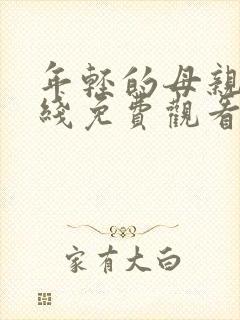 年輕的母親
綫免費觀看
家有大白